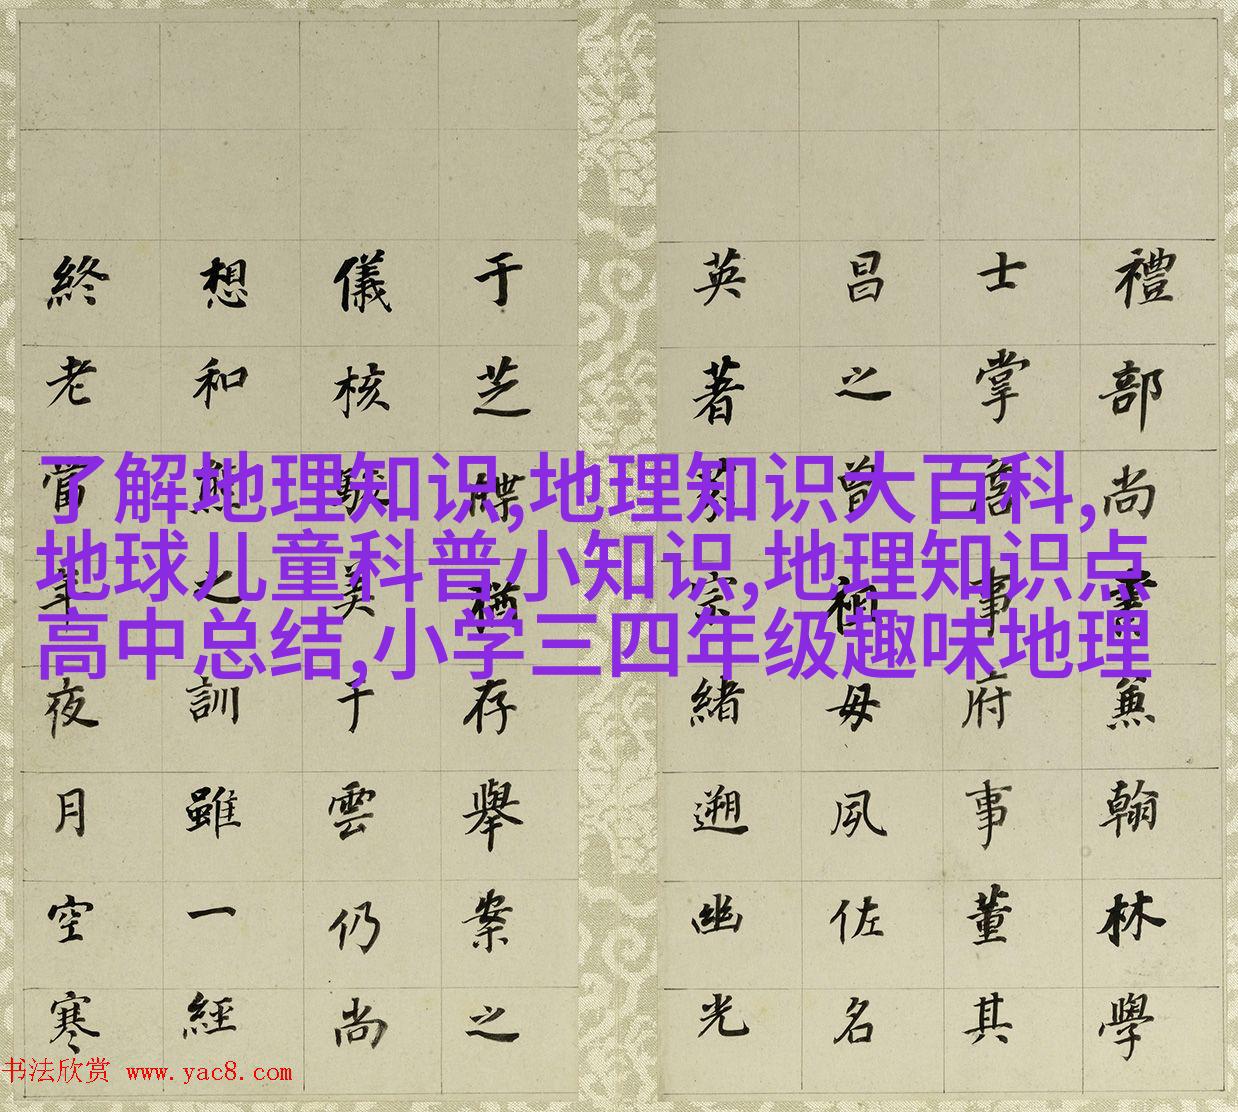 了解地理知识,地理知识大百科,
地球儿童科普小知识,地理知识点
高中总结,小学三四年级趣味地理
禮部尚書兼翰林學
士掌詹事府事董其
昌之曾祖母夙佐名
英著宗緒遡幽光
于芝牒猶存舉案之
儀核駿美于雲仍尚
想和熊之訓雖一經
終老當夜月空寒
书法欣赏 www.yac8.com